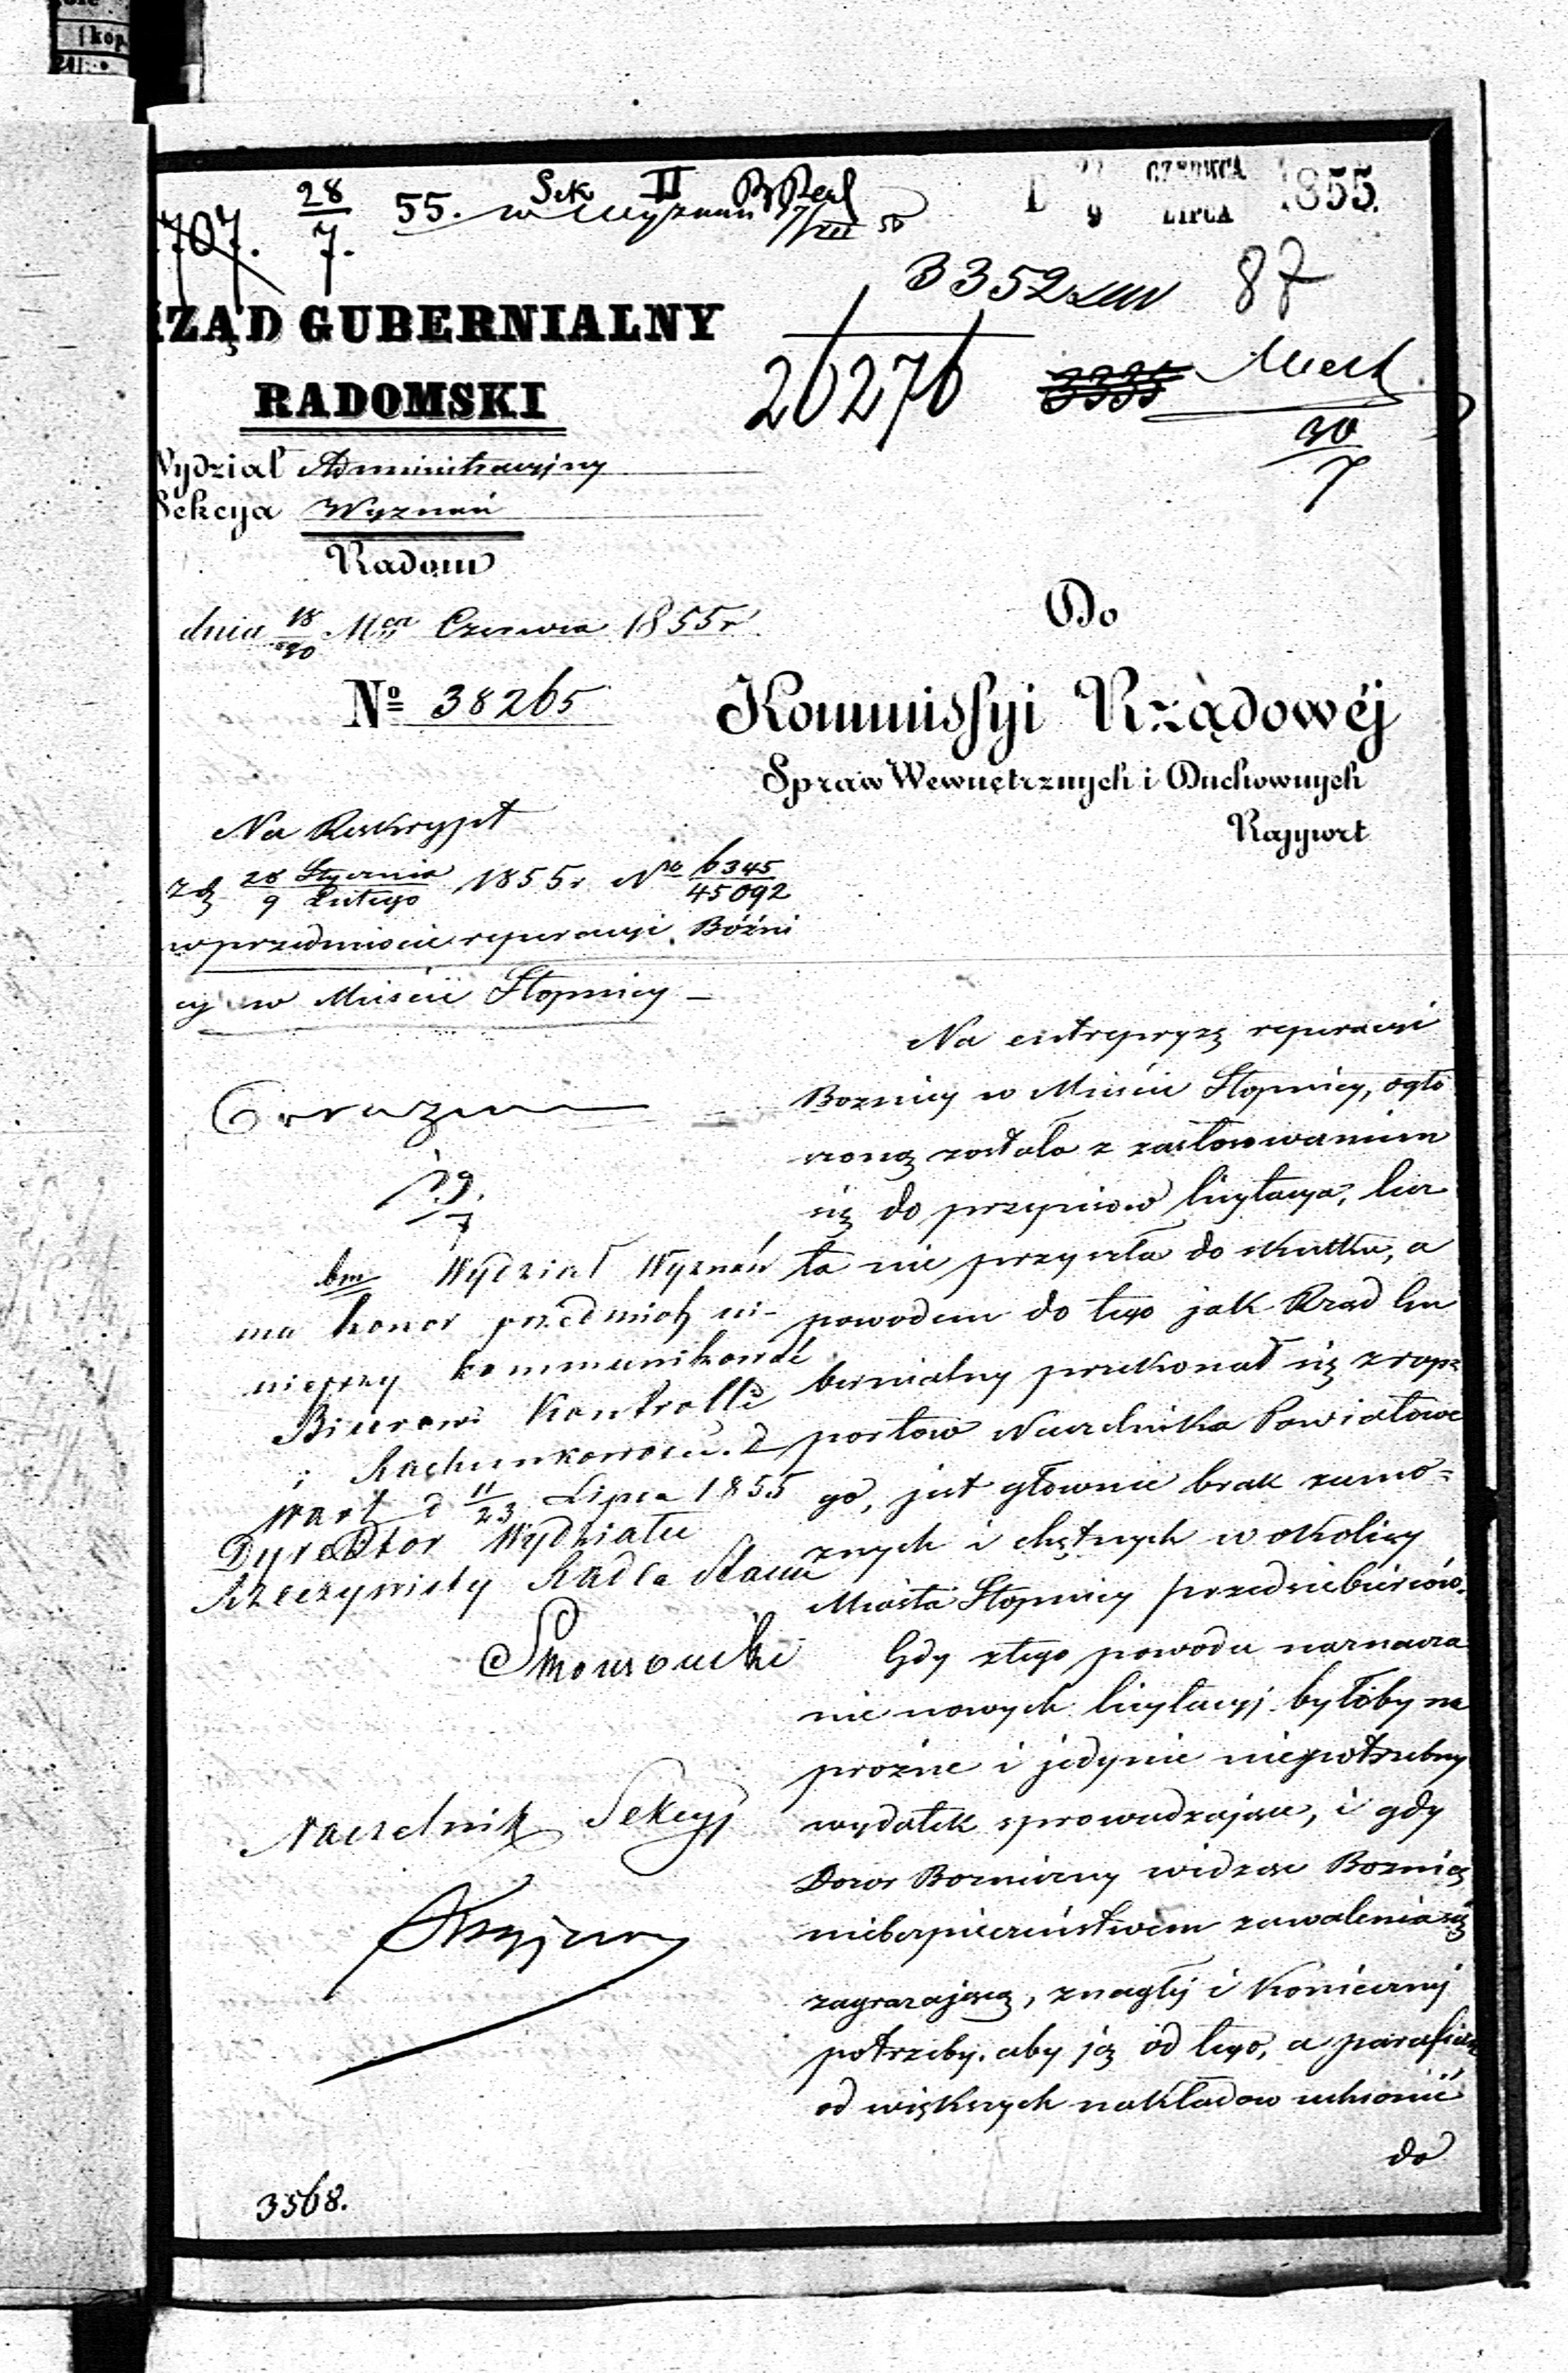 28/7. 55. Sek II
707.
27 CZERWCA 1855.
9 LIPCA
3352
87
26276
3335
30/7
RZĄD GUBERNIALNY
RADOMSKI
Wydział Administracyjny
Sekcya Wyznań
Radom
dnia 18/30 Mca Czerwca 1855 r
No 38265
Do
Kommissyi Rządowéj
Spraw Wewnętrznych i Duchownych
Raport
Na Reskrypt
z d. 28 Stycznia/9 Lutego 1855 r No 6345/45092
w przedmiocie reperacyi Bóźni
cy w Mieście Stopnicy –
Na entrepryzę reperacyi
Boznicy w Mieście Stopnicy, ogło
szoną została z zastosowaniem
się do przepisów licytacya, lecz
ta nie przyszła do skutku, a
powodem do tego jak Rząd Gu
bernialny przekonał się z rapo
portow Naczelnika Powiatowe
go, jest głownie brak zamo=
znych i chętnych w okolicy
Miasta Stopnicy przedsiebiercow.
Gdy z tego powodu naznacza
nie nowych licytacyj byłoby na
prozne i jedynie niepotrzebny
wydatek sprowadzające, i gdy
Dozor Bozniczny widząc Boznicę
niebezpieczeństwem zawalenia się
zagrazającą, z nagłej i koniecznej
potrzeby, aby ją od tego, a parafian
od większych nakładow uchronić
do
19/7
bm Wydział Wyznań
ma honor przedmiot ni-
niejszy kommunikować
Biurowi Kontrolli
i Rachunkowości. d
Warsz d 11/23 Lipca 1855
Dyrektor Wydziału
Rzeczywisty Radca Stanu
Naczelnik Sekcyi
3568.